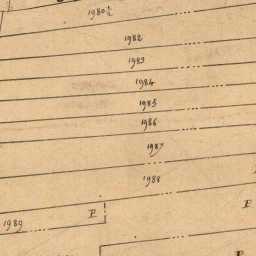 1980½
1982
1983
1984
1985
1986
1987
1988
P
P
1989
P